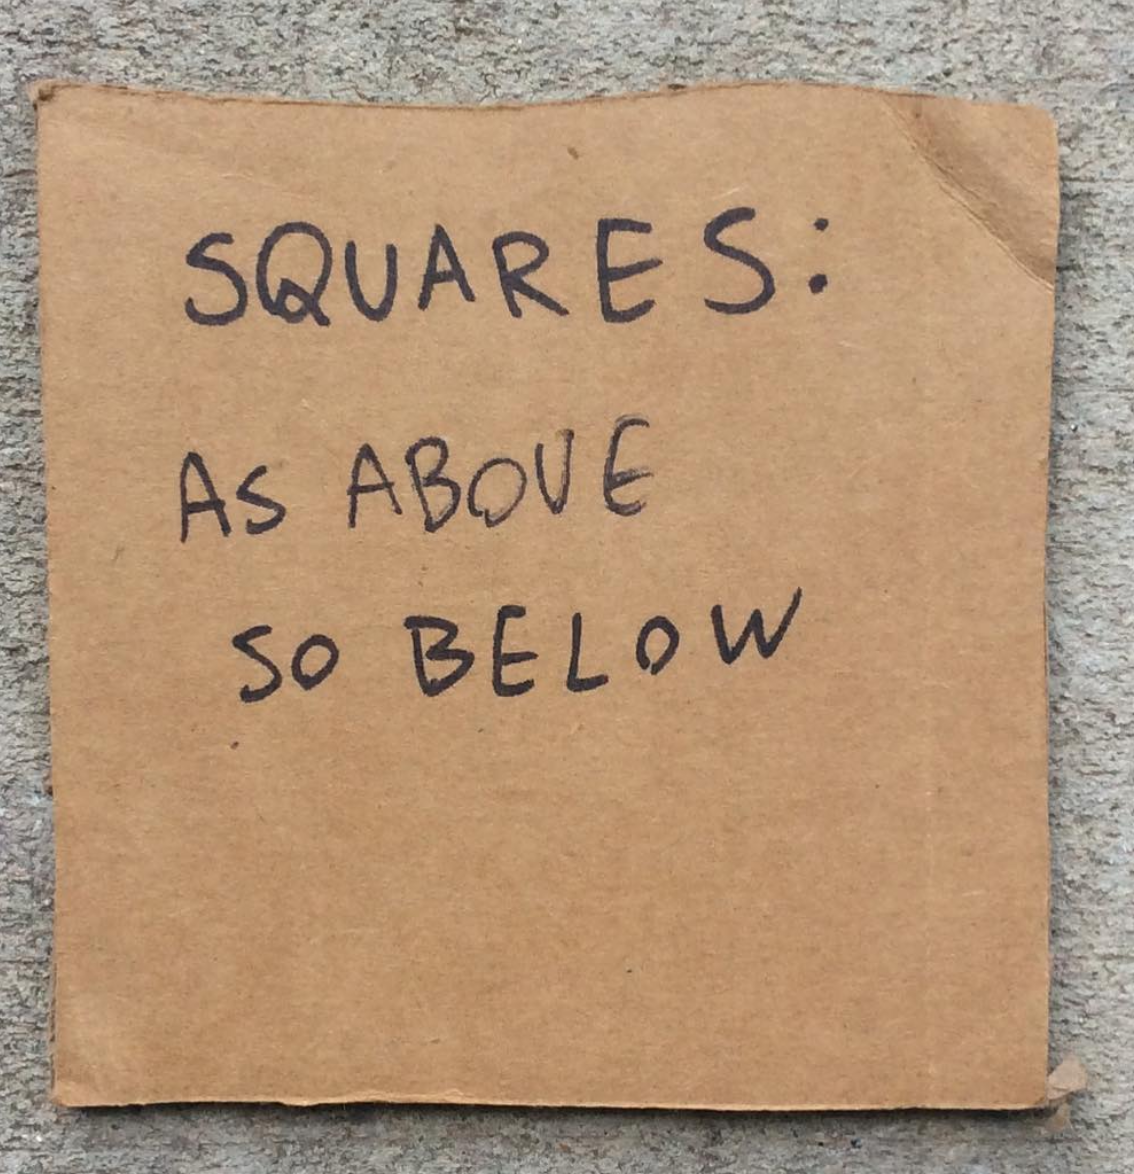 SQUARES:
AS ABOVE
SO BELOW